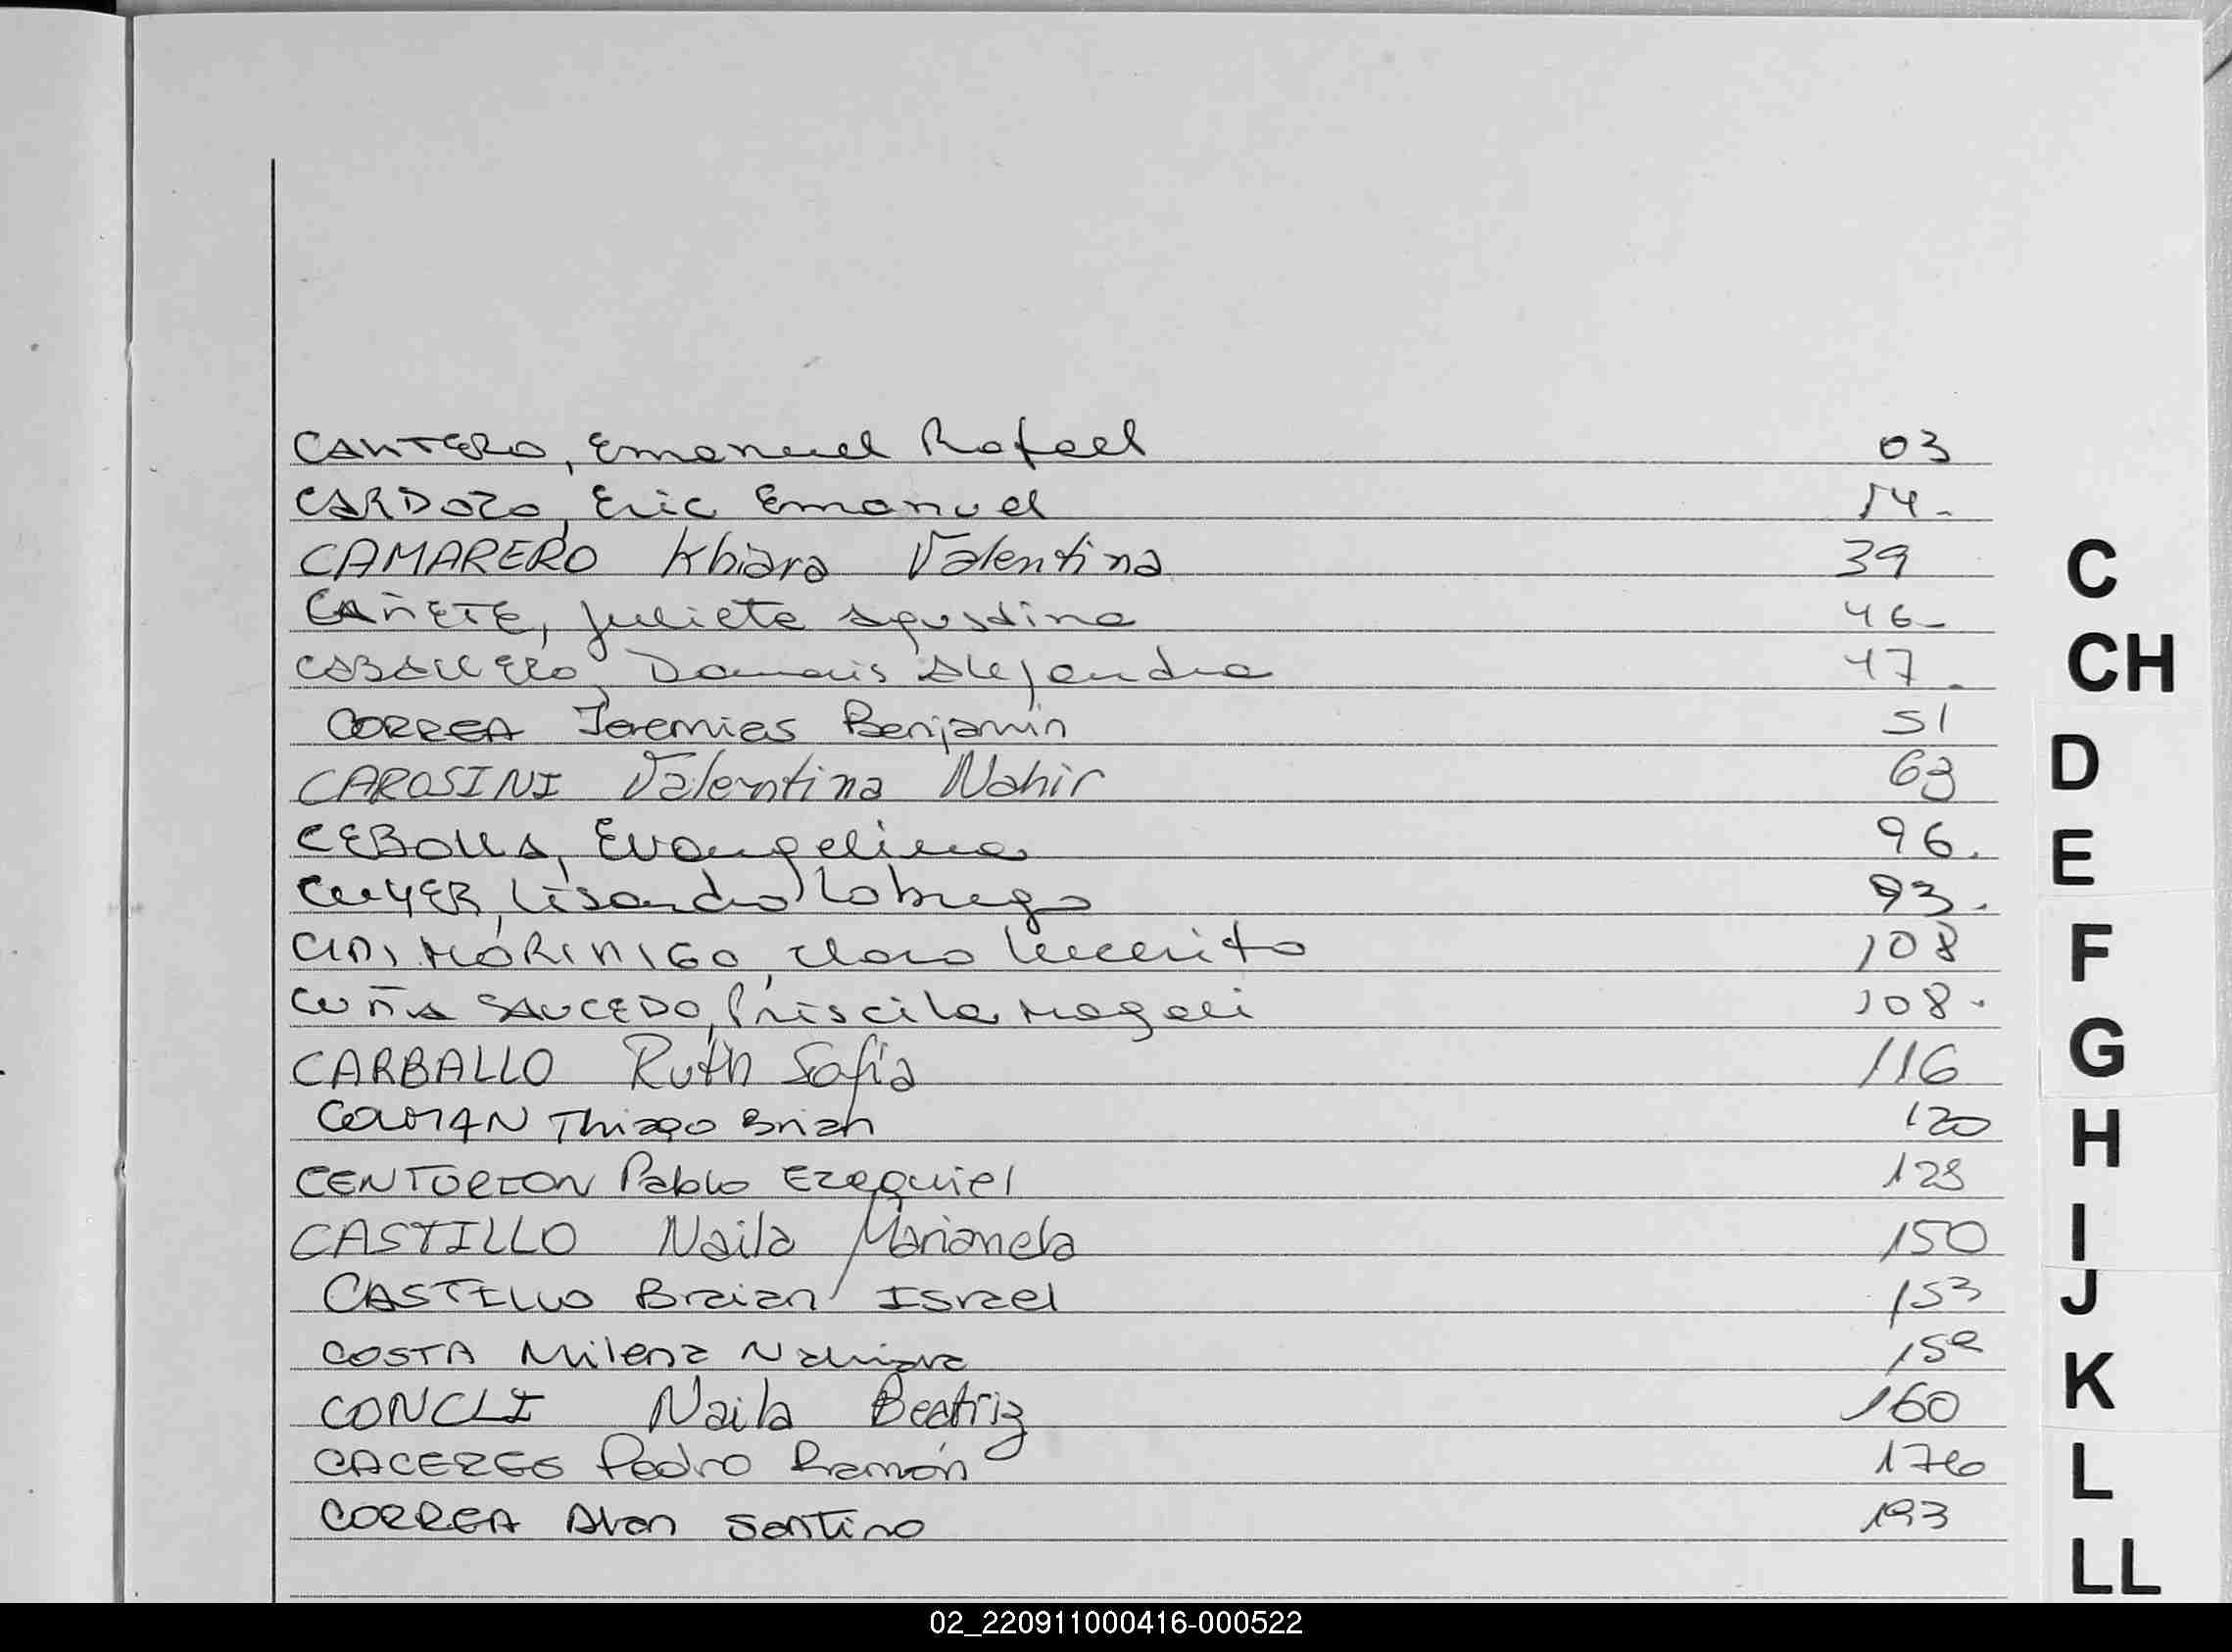 CANTERO, Emanuel Rafael 03
CARDOZO, Eric Emanuel 14.
CAMARERO Khiara Valentina 39
CAÑETE, Julieta Agustina 46-
CABALLERO, Damaris Alejandra 47.
CORREA Jeremias Benjamin 51
CAROSINI Valentina Nahir 63
CEBOLLA, Evangelina 96.
CUYER, Lisandro 93.
CIDI MORINIGO, Clara Lucerito 108
CUÑA SAUCEDO, Priscila Magali 108.
CARBALLO Ruth Sofía 116
COLMAN Thiago Brian 120
CENTURION Pablo Ezequiel 128
CASTILLO Naila Marianela 150
CASTILLO Braian Israel 153
COSTA Milena Nahiara
CONCLI Naila Beatriz 160
CACERES Pedro Ramón 176
CORREA Alan Santino 193
C
CH
D
E
F
G
H
I
J
K
L
LL
02_220911000416-000522